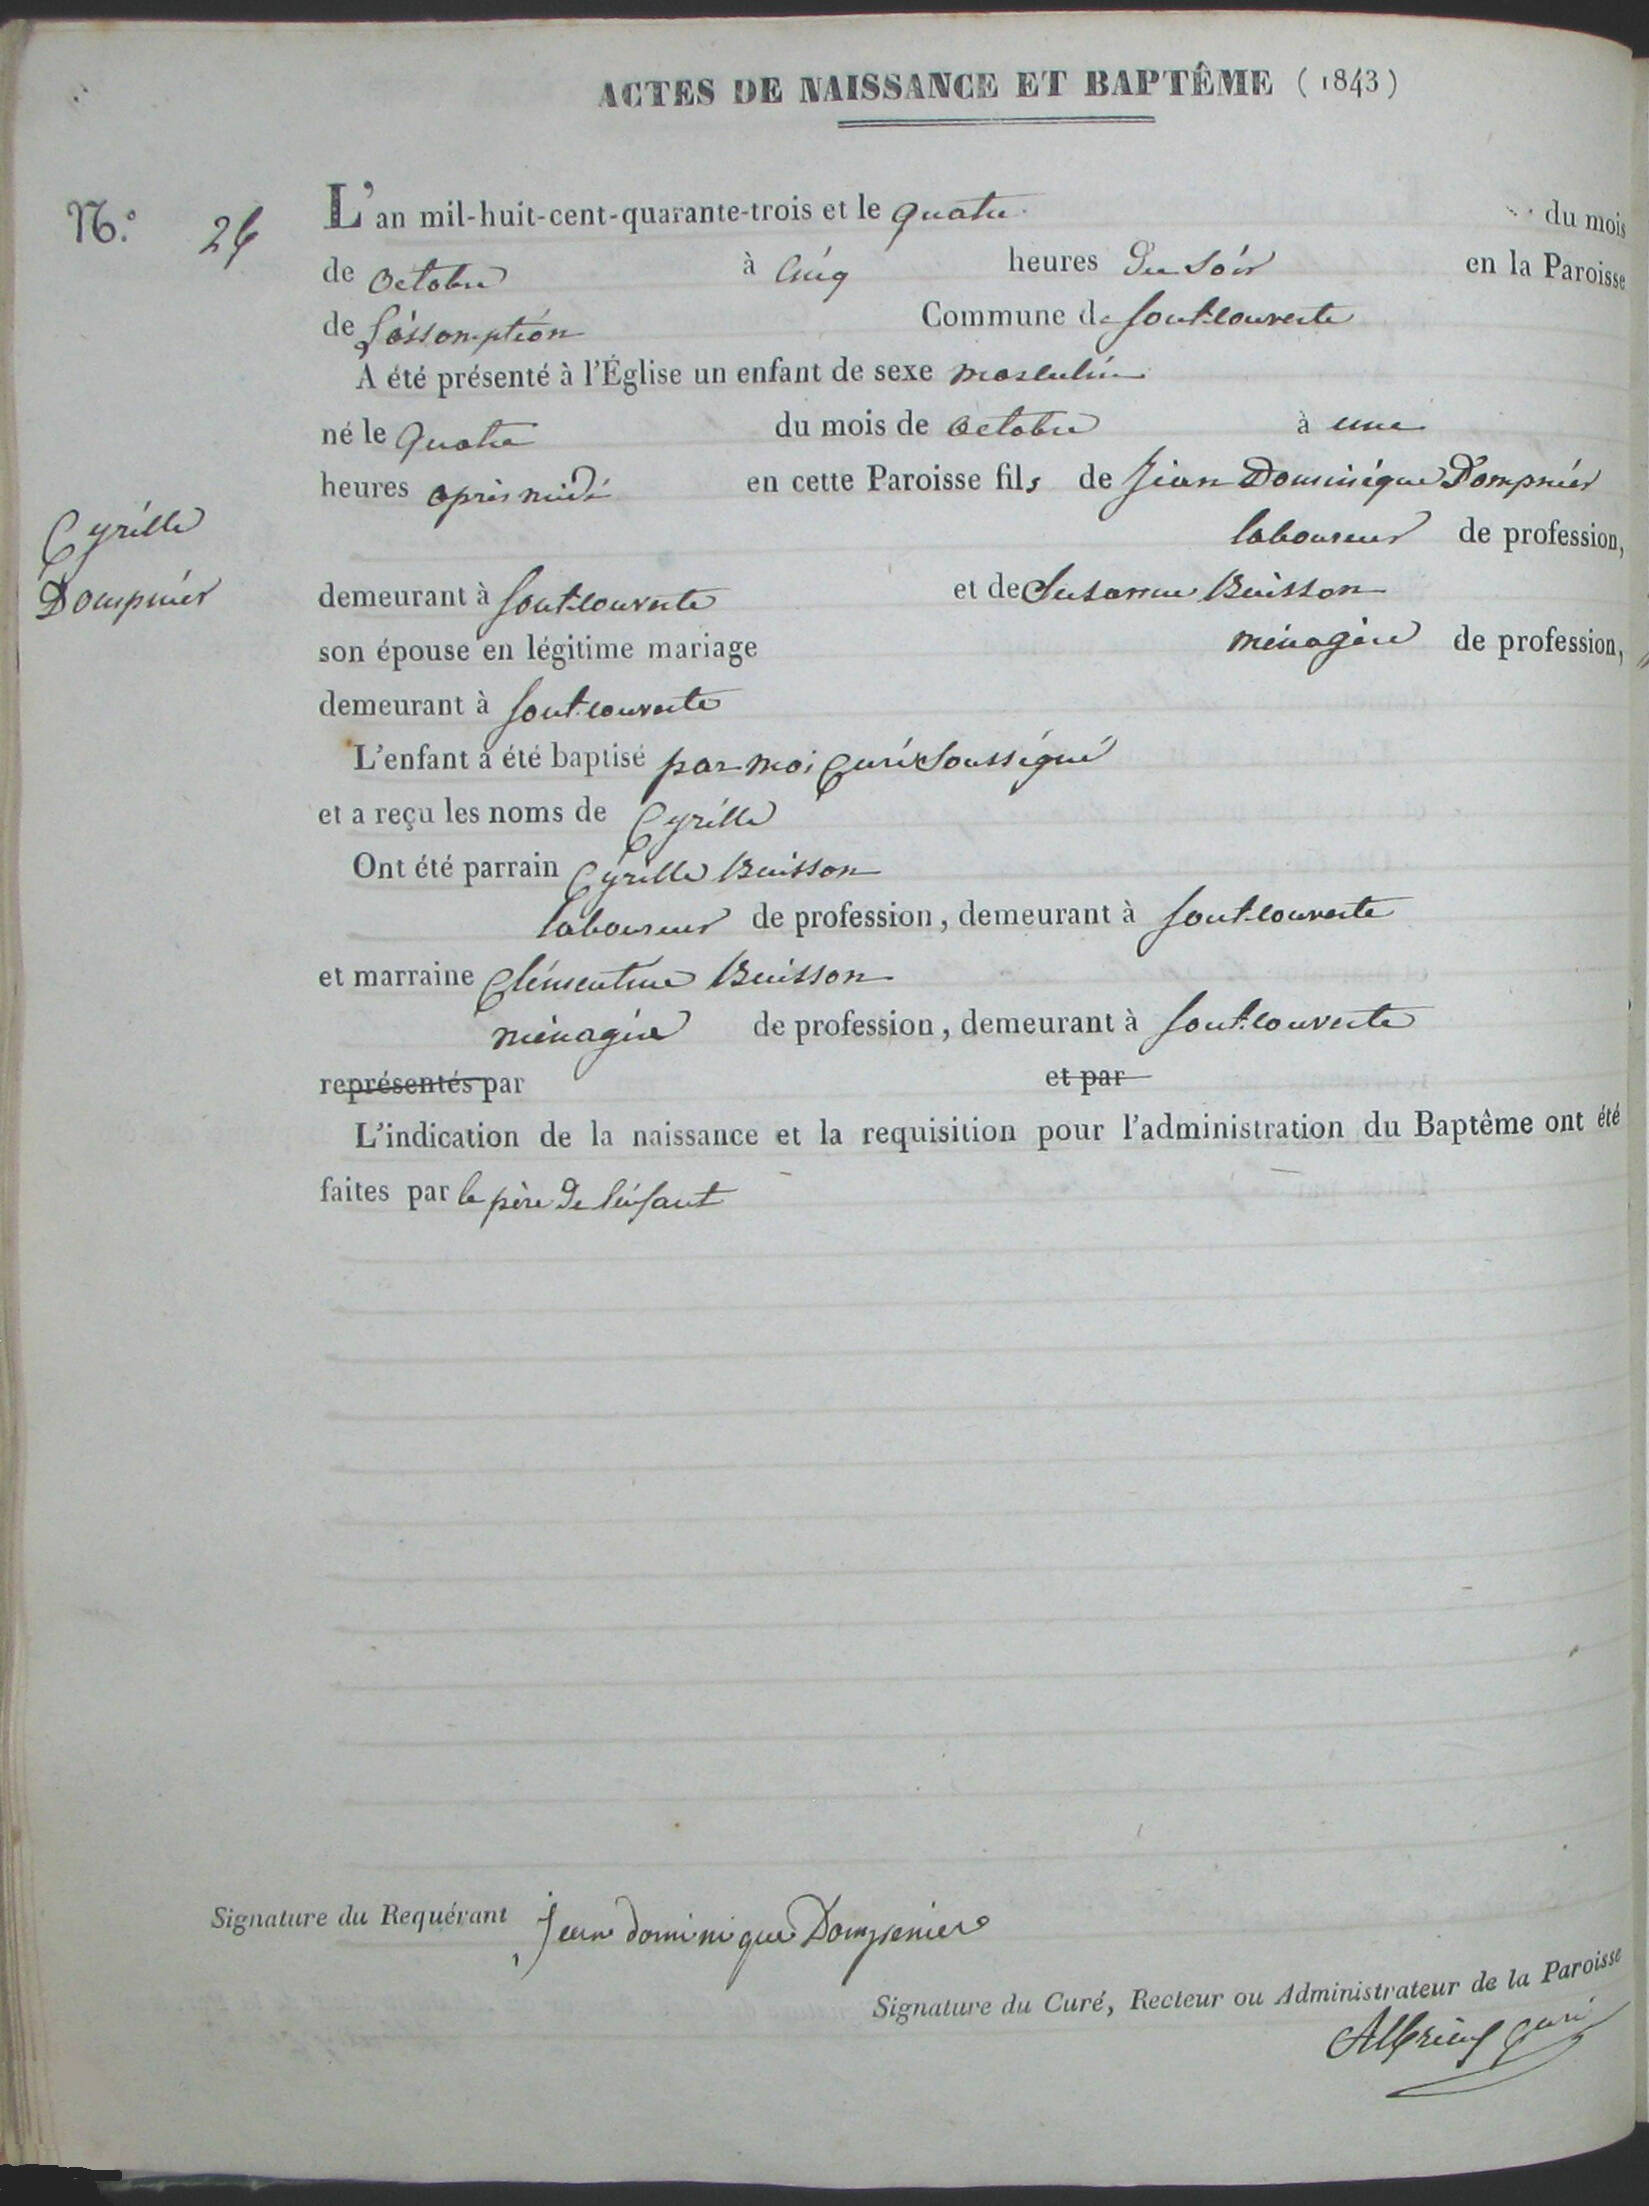 ACTES DE NAISSANCE ET BAPTÊME (1843)
N.º 26 L'an mil-huit-cent-quarante-trois et le quatre du mois
de octobre à cinq heures du soir en la Paroisse
de L'assomption Commune de fontcouverte
A été présenté à l'Église un enfant de sexe masculin
né le quatre du mois de octobre à une
heures après midi en cette Paroisse fils de Jean Dominique Dompnier
laboureur de profession,
Cyrille
Dompnier
demeurant à fontcouverte et de Susanne Buisson
son épouse en légitime mariage ménagère de profession,
demeurant à fontcouverte
L'enfant a été baptisé par moi Curé soussigné
et a reçu les noms de Cyrille
Ont été parrain Cyrille Buisson
laboureur de profession, demeurant à fontcouverte
et marraine Clémentine Buisson
ménagère de profession, demeurant à fontcouverte
représentés par et par
L'indication de la naissance et la requisition pour l'administration du Baptême ont été
faites par le père de l'enfant
Signature du Requérant Jean dominique Dompnier
Signature du Curé, Recteur ou Administrateur de la Paroisse
curé